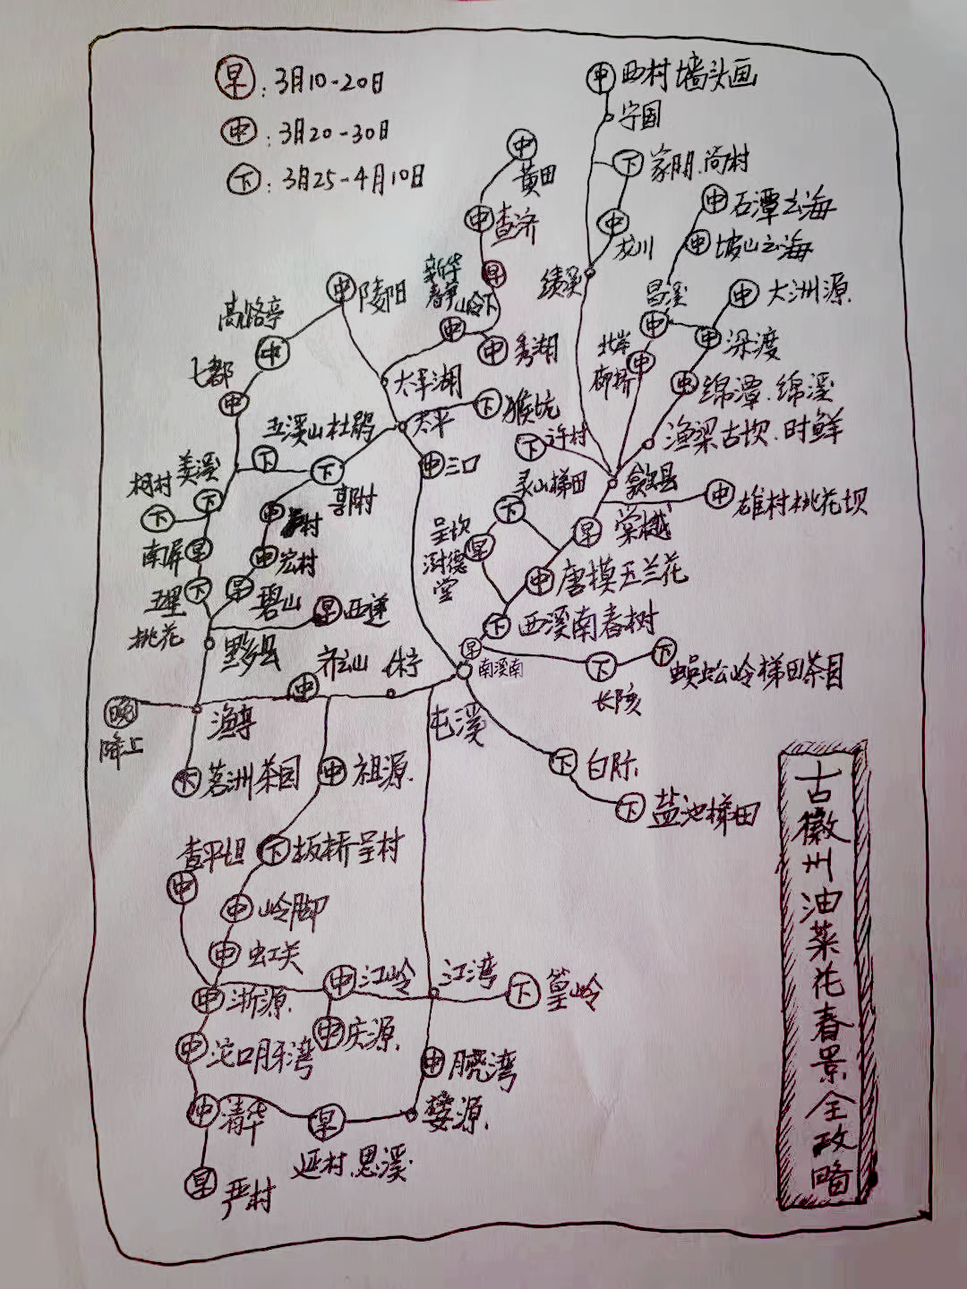 早：3月10-20日
中：3月20-30日
下：3月25-4月10日
中 西村墙头画
宁国
下 家朋.尚村
中 黄田
中 查济
中 龙川
中 石潭云海
中 坡山云海
绩溪
早 岭下
中 陵阳
昌溪 中
中 大洲源
高路亭 中
中 秀湖
北岸 中
中 深渡
七都 中
太平湖
中 绵潭.绵溪
太平
下 猴坑
渔梁古坎.时鲜
五溪山杜鹃
下 许村
中 三口
歙县
柯村 下
美溪 下
下
灵山梯田 下
中 雄村桃花坝
呈坎 早
早 棠樾
南屏 早
中 宏村
中 唐模玉兰花
五里 下
桃花
早 碧山
早 西递
下 西溪南春树
黟县
早 南溪南
齐云山 中
休宁
下 长陔
下 蜈蚣岭梯田茶园
晚 降上
渔亭
屯溪
下 茗洲茶园
中 祖源
下 白际
下 盐池梯田
查平坦 中
下 板桥呈村
中 岭脚
中 虹关
中 浙源
中 江岭
江湾
下 篁岭
中 沱口月牙湾
中 庆源
中 晓湾
中 清华
早
婺源
延村.思溪
早 严村
古徽州油菜花春景全攻略